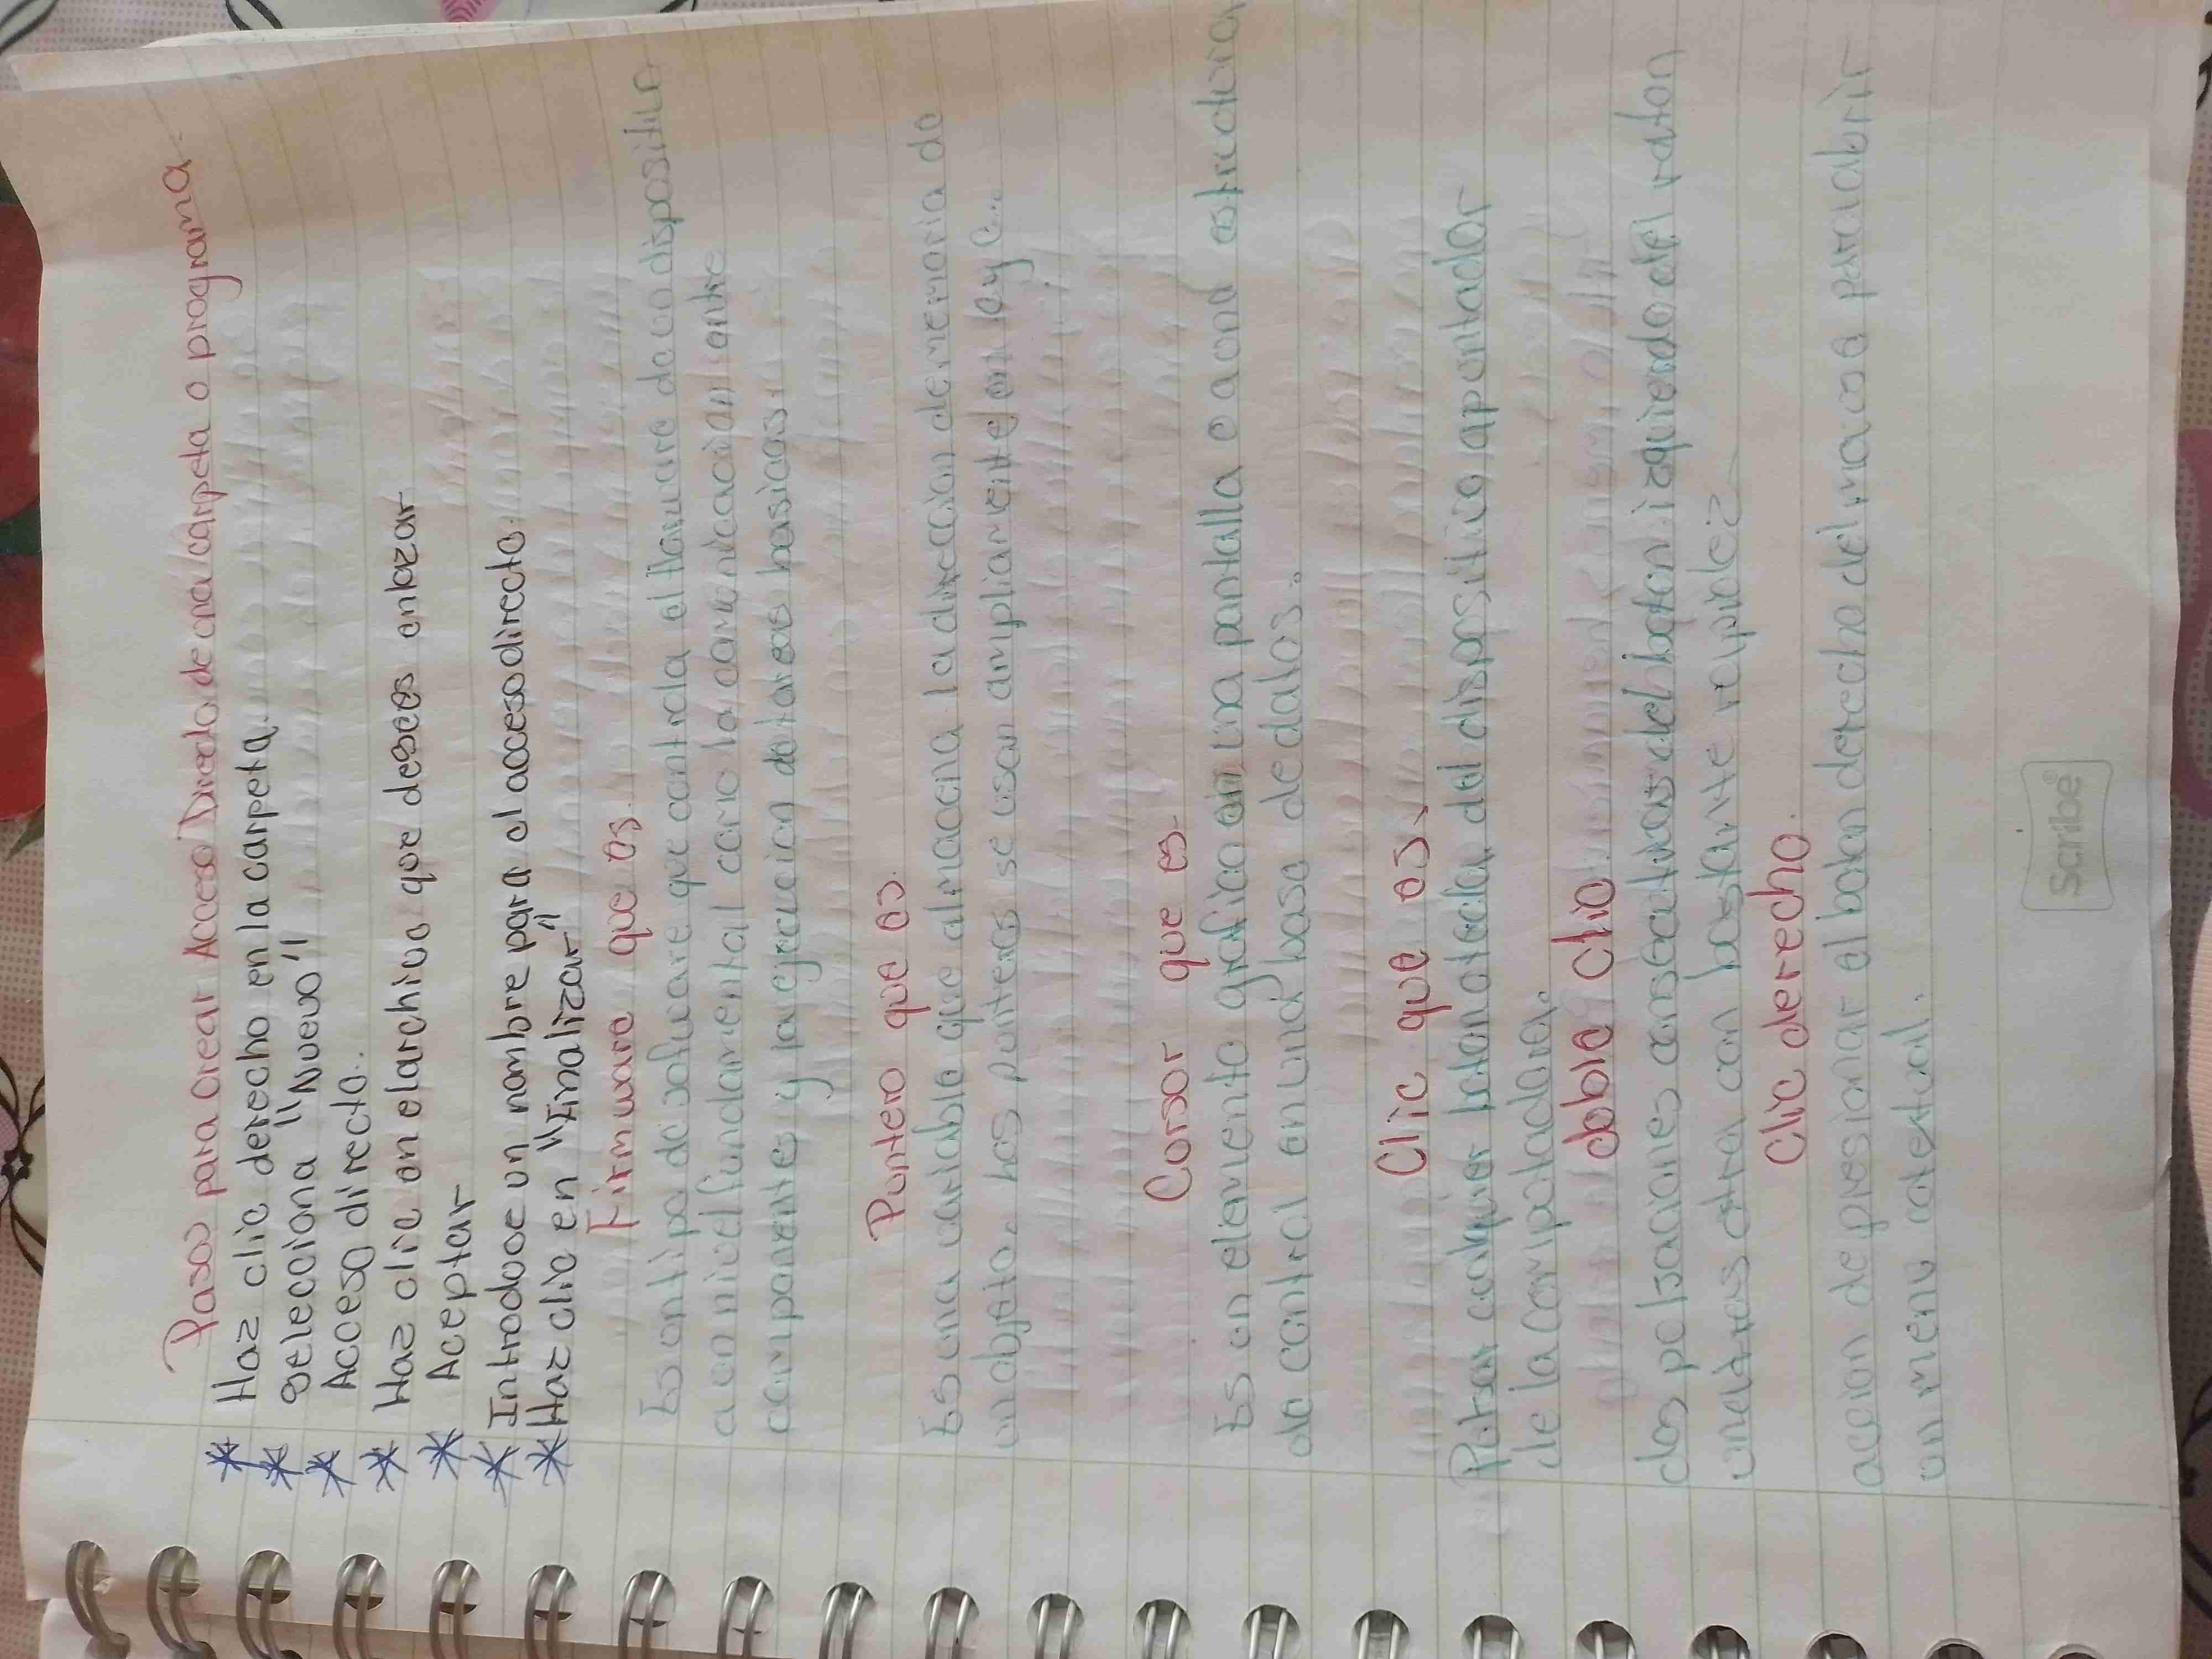 Pasos para crear Acceso Directo de una carpeta o programa.
* Haz clic derecho en la carpeta.
* Selecciona "Nuevo"
* Acceso directo.
* Haz clic en el archivo que deseas enlazar
* Aceptar
* Introduce un nombre para el acceso directo.
* Haz clic en "Finalizar"
Firmware que es.
Es un tipo de sofware que controla el harware de un dispositivo
a un nivel fundamental como la comunicación entre
componentes y la ejecucion de tareas basicas.
Puntero que es.
Es una variable que almacena la dirección de memoria de
un objeto. Los punteros se usan ampliamente en C y C...
Cursor que es-
Es un elemento grafico en una pantalla o a una estructura
de control en una base de datos.
Clic que es.
Pulsar cualquier boton o tecla del dispositivo apuntador
de la computadora.
doble clic
dos pulsaciones consecutivas del boton izquierdo del raton
una tras otra con bastante rapidez
Clic derecho.
accion de presionar el boton derecho del mouse para abrir
un menu cotextual.
Scribe®